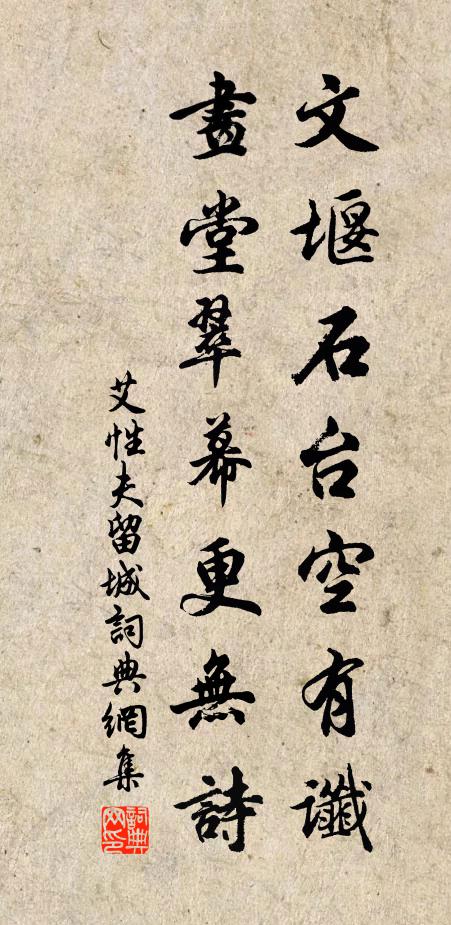 文堰石台空有谶
畫堂翠幕更無詩
艾性夫留城詞典網集
詞典网印